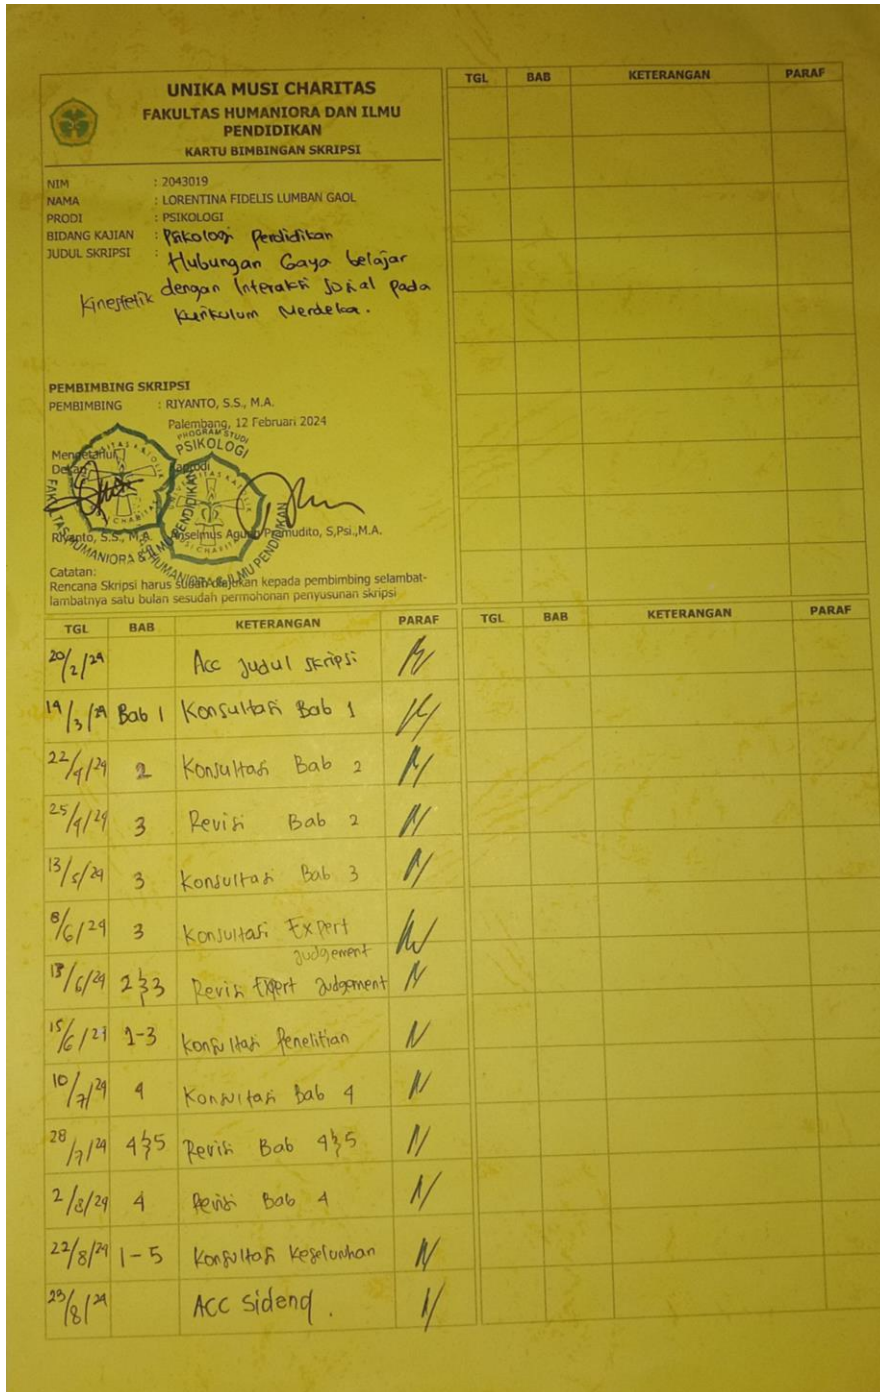 UNIKA MUSI CHARITAS
FAKULTAS HUMANIORA DAN ILMU
PENDIDIKAN
KARTU BIMBINGAN SKRIPSI
NIM : 2043019
NAMA : LORENTINA FIDELIS LUMBAN GAOL
PRODI : PSIKOLOGI
BIDANG KAJIAN : Psikologi Pendidikan
JUDUL SKRIPSI : Hubungan Gaya belajar
Kinestetik dengan Interaksi Sosial pada
Kurikulum Merdeka.
PEMBIMBING SKRIPSI
PEMBIMBING : RIYANTO, S.S., M.A.
Palembang, 12 Februari 2024
PROGRAM STUDI
PSIKOLOGI
Mengetahui,
Dekan Kaprodi
FAKULTAS HUMANIORA & ILMU PENDIDIKAN
HUMANIORA & ILMU PENDIDIKAN
Riyanto, S.S., M.A. Anselmus Agung Pramudito, S,Psi.,M.A.
Catatan:
Rencana Skripsi harus sudah diajukan kepada pembimbing selambat-
lambatnya satu bulan sesudah permohonan penyusunan skripsi
TGL BAB KETERANGAN PARAF
20/2/24 Acc Judul skripsi
19/3/24 Bab 1 Konsultasi Bab 1
22/4/24 2 Konsultasi Bab 2
25/4/24 3 Revisi Bab 2
13/5/24 3 Konsultasi Bab 3
8/6/24 3 Konsultasi Expert
Judgement
13/6/24 2 & 3 Revisi Expert Judgement
15/6/24 1-3 Konsultasi Penelitian
10/7/24 4 Konsultasi Bab 4
28/7/24 4 & 5 Revisi Bab 4 & 5
2/8/24 4 Revisi Bab 4
22/8/24 1-5 Konsultasi Keseluruhan
23/8/24 ACC Sidang.
TGL BAB KETERANGAN PARAF
TGL BAB KETERANGAN PARAF